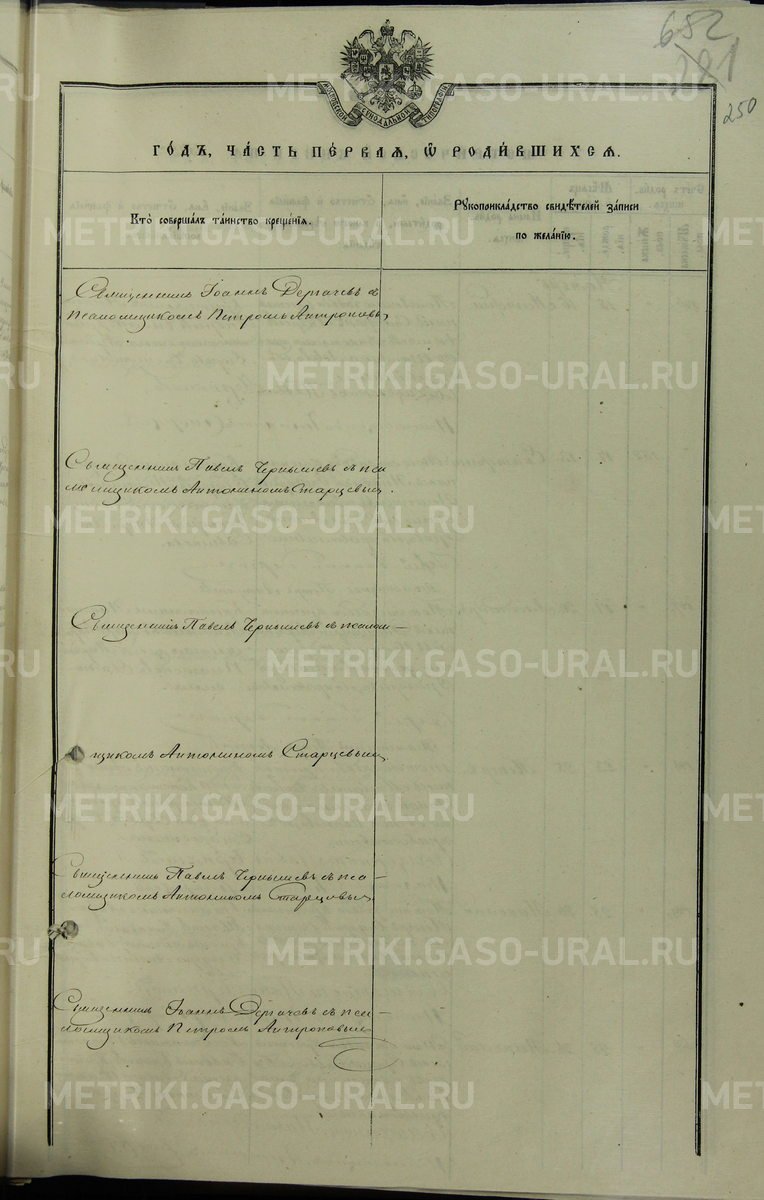 652
281
250
МОСКОВСКОЙ СѴНОДАЛЬНОЙ ТИПОГРАФІИ
ГО́ДЪ, ЧА́СТЬ ПЕ́РВАЯ, Ѡ҆ РОДИ́ВШИХСЯ.
Кто̀ соверша́лъ та́инство креще́нїя.
Рꙋкоприкла́дство свидѣ́телей за́писи
по жела́нїю.
Священникъ Іоаннъ Дергачевъ съ
псаломщикомъ Петромъ Антроповымъ
Священникъ Павелъ Чернышевъ съ пса
ломщикомъ Антониномъ Старцевымъ.
Священникъ Павелъ Чернышевъ съ псалом—
щикомъ Антониномъ Старцевымъ.
Священникъ Павелъ Чернышевъ съ пса—
ломщикомъ Антониномъ Старцевымъ.
Священникъ Іоаннъ Дергачевъ съ пса—
ломщикомъ Петромъ Антроповымъ
METRIKI.GASO-URAL.RU